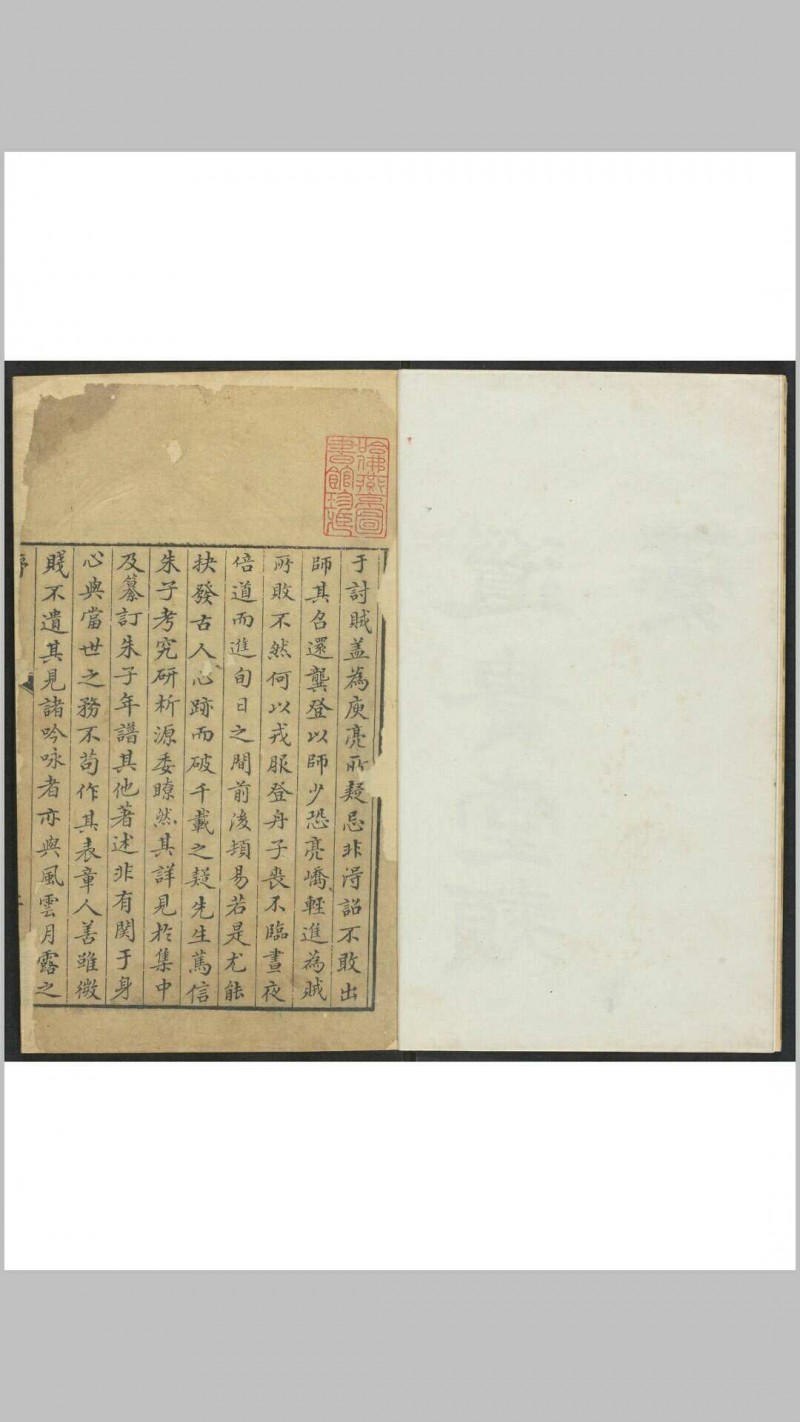 于討賊盖為庾亮所疑忌非淂詔不敢出
師其召還龔登以師少恐亮嶠輕進為賊
所敗不然何以戎服登舟子喪不臨晝夜
倍道而進旬日之間前後頓易若是尤能
抉發古人心跡而破千載之疑先生篤信
朱子考究研析源委瞭然其詳見於集中
及纂訂朱子年譜其他著述非有関于身
心與當世之務不苟作其表章人善雖微
賤不遺其見諸吟咏者亦與風雲月露之
序
哈佛燕京圖
書館珍藏